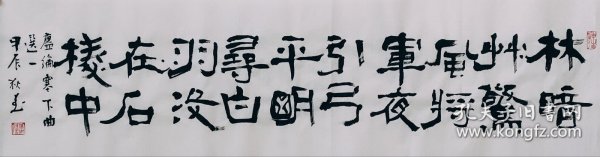 林暗
艸驚
風將
軍夜
引弓
平明
尋白
羽沒
在石
棱中
盧綸塞下曲
選一
甲辰秋
孔夫子旧书网
www.kongfz.com